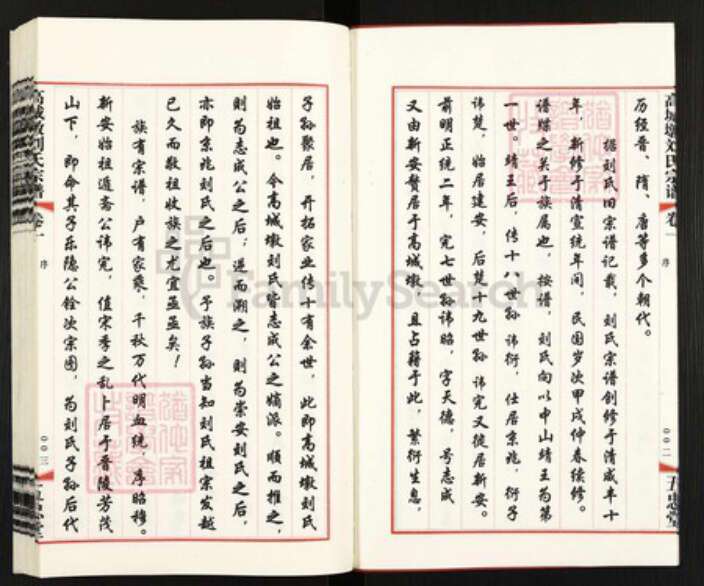 历经晋、隋、唐等多个朝代。
据刘氏旧宗谱记载，刘氏宗谱创修于清咸丰十
年，新修于清宣统年间，民国岁次甲戌仲春续修。
谱牒之关于族属也，按谱，刘氏向以中山靖王为第
一世。靖王后，传十八世孙讳衍，仕居京兆，衍子
讳楚，始居建安，后楚十九世孙讳完又徙居新安。
前明正统二年，完七世孙讳昭，字天德，号志成
又由新安赘居于高城墩，且占籍于此，繁衍生息，
高城墩刘氏宗谱 卷一
序
〇〇二
五忠堂
子孙聚居，开拓家业传十有余世，此即高城墩刘氏
始祖也。今高城墩刘氏皆志成公之嫡派。顺而推之，
则为志成公之后；逆而溯之，则为崇安刘氏之后，
亦即京兆刘氏之后也。予族子孙当知刘氏祖宗发越
已久而敬祖收族之尤宜亟亟矣！
族有宗谱，户有家乘，千秋万代明血统，序昭穆。
新安始祖遁斋公讳完，值宋季之乱卜居于晋陵芳茂
山下，即命其子乐隐公铨次宗图，为刘氏子孙后代
高城墩刘氏宗谱 卷一
序
〇〇三
五忠堂
FamilySearch